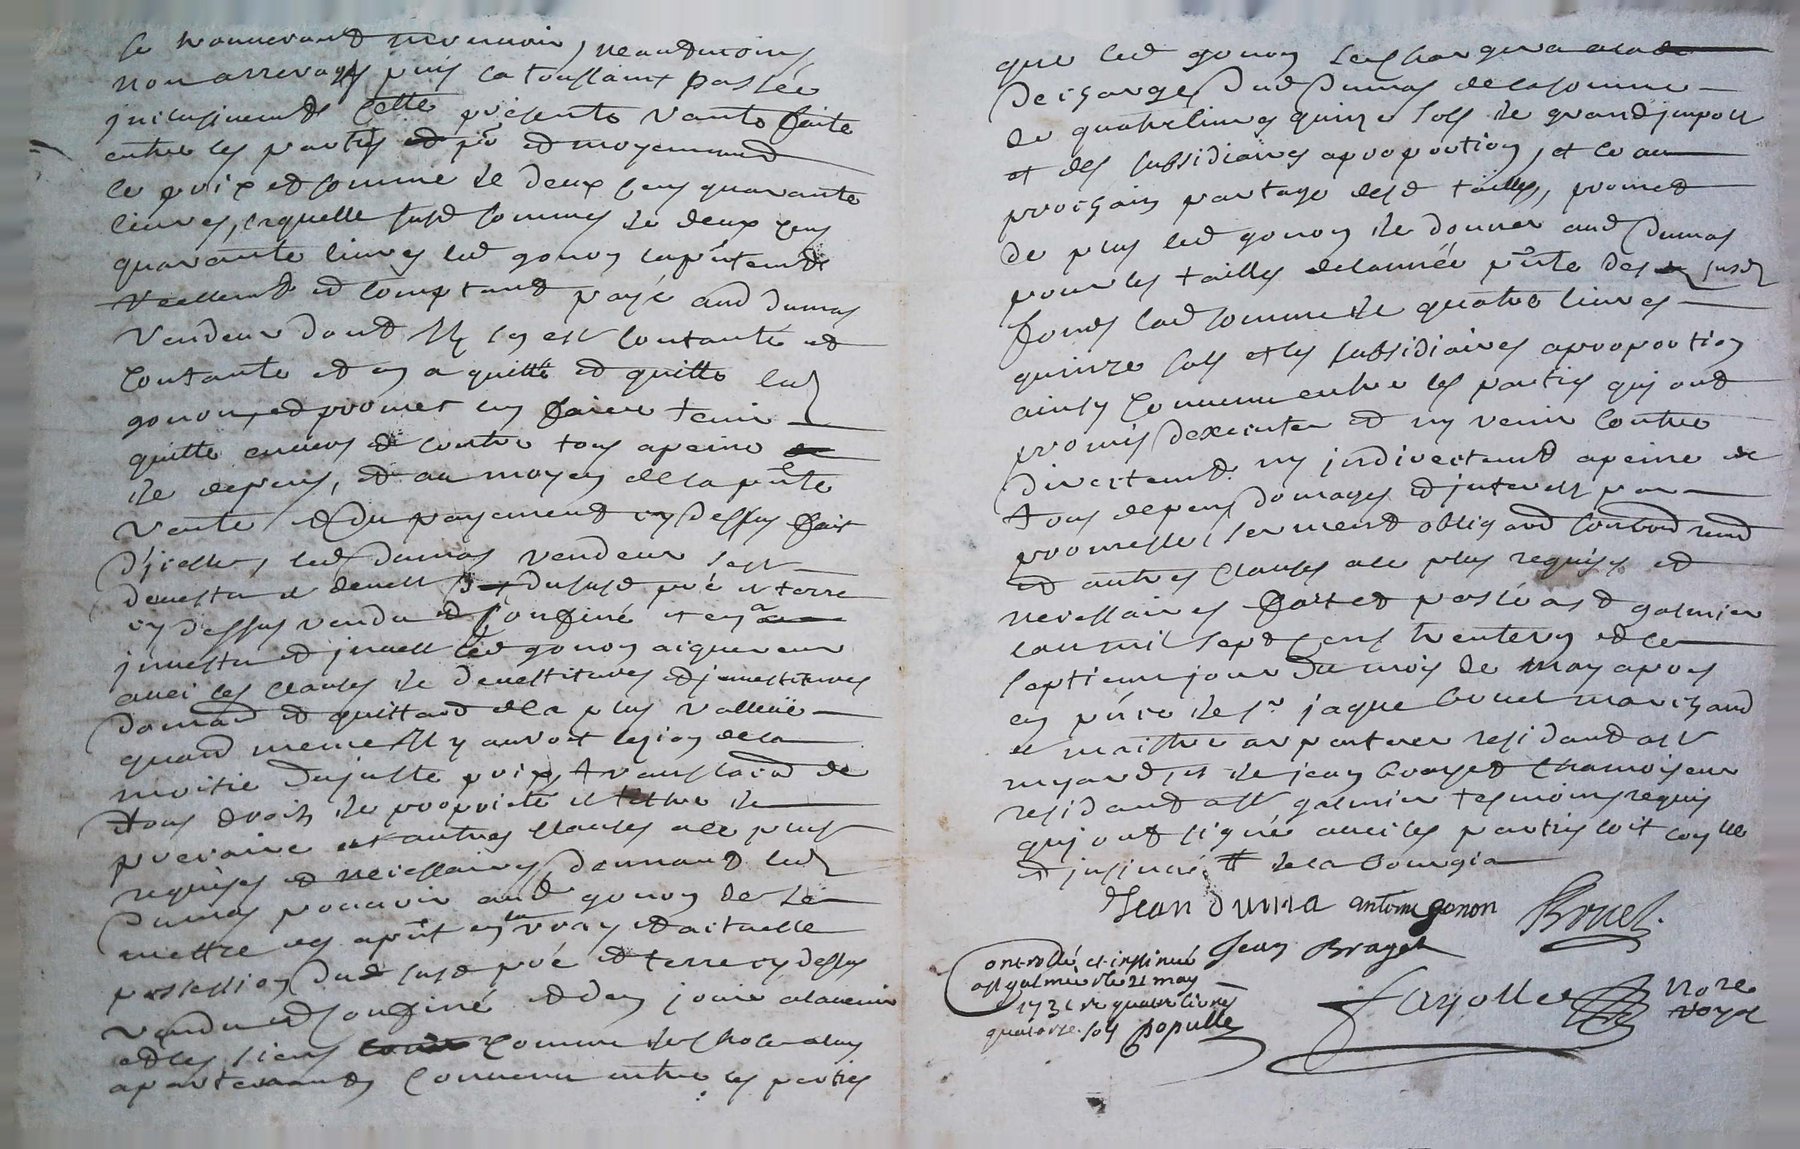 se trouverand neremoin, neandmoins
non arrerages puis la toussaint passée
inclusivement cette présente vante faite
entre les parties et pñt et moyennand
le prix et somme de deux cens quarante
livres, laquelle susd somme de deux cens
quarante livres led gonon a pñtemt
reellemt et comptand payé aud dumas
vendeur dont Il en est contante et
contante et en a quitté et quitte led
gonon, et promet len faire tenir
quitte envers et contre tous a peine
de depens, et au moyen de la pñte
vente et du payement cy dessus fait
d'icelle, led dumas vendeur sest
devestu et devest du susd pré et terre
cy dessus vendu et confiné et en a
investu et invest led gonon aiquereur
avec les clauses de devestitures et investitures
donnand et quittand de la plus valleüe
quand meme Il y auroit lesion de la
moitié du juste prix, transferand de
tous droits de proprieté et tiltre de
precaire et autres clauses a ce plus
requises et necessaires, donnand led
dumas pouvoir aud gonon de se
mettre en apñt en la vray et actuelle
possession dud susd pré et terre cy dessus
vendu et confiné et den jouir a lavenir
et les siens comme de chose a luy
apartenand, convenu entre les parties
que led gonon se chargera a la
decharge dud dumas de la somme
de quatre livres quinze sols de grand impost
et des subsidiaires a proportion, et ce au
prochain partage desd tailles, promet
de plus led gonon de donner aud dumas
pour les tailles de lannée pñte des susd
fonds lad somme de quatre livres
quinze sols et les subsidiaires a proportion
ainsy convenu entre les parties qui ont
promis dexecuter et ny venir contre
directemt ny indirectemt a peine de
tous depens domages et interest par
promesse, serment obligand soubmetand
et autres clauses a ce plus requises et
necessaires fait et passé a st galmier
lan mil sept cens trente un et le
septieme jour du mois de may apres
en pñce de sr jaque Bouet marchand
et maistre arpenteur residand a st
myard, et de jean brayet chamoiseur
residand a st galmier tesmoins requis
qui ont signé avec les parties soit con lle
et insinué # de la bourgia
Jean dumá antoine gonon Bouet
Jean Brayet
Controllé et insinué
a st galmier le 21 may
1731 re quatre livres
quatorze sols Populle
Fayolle nore
royal